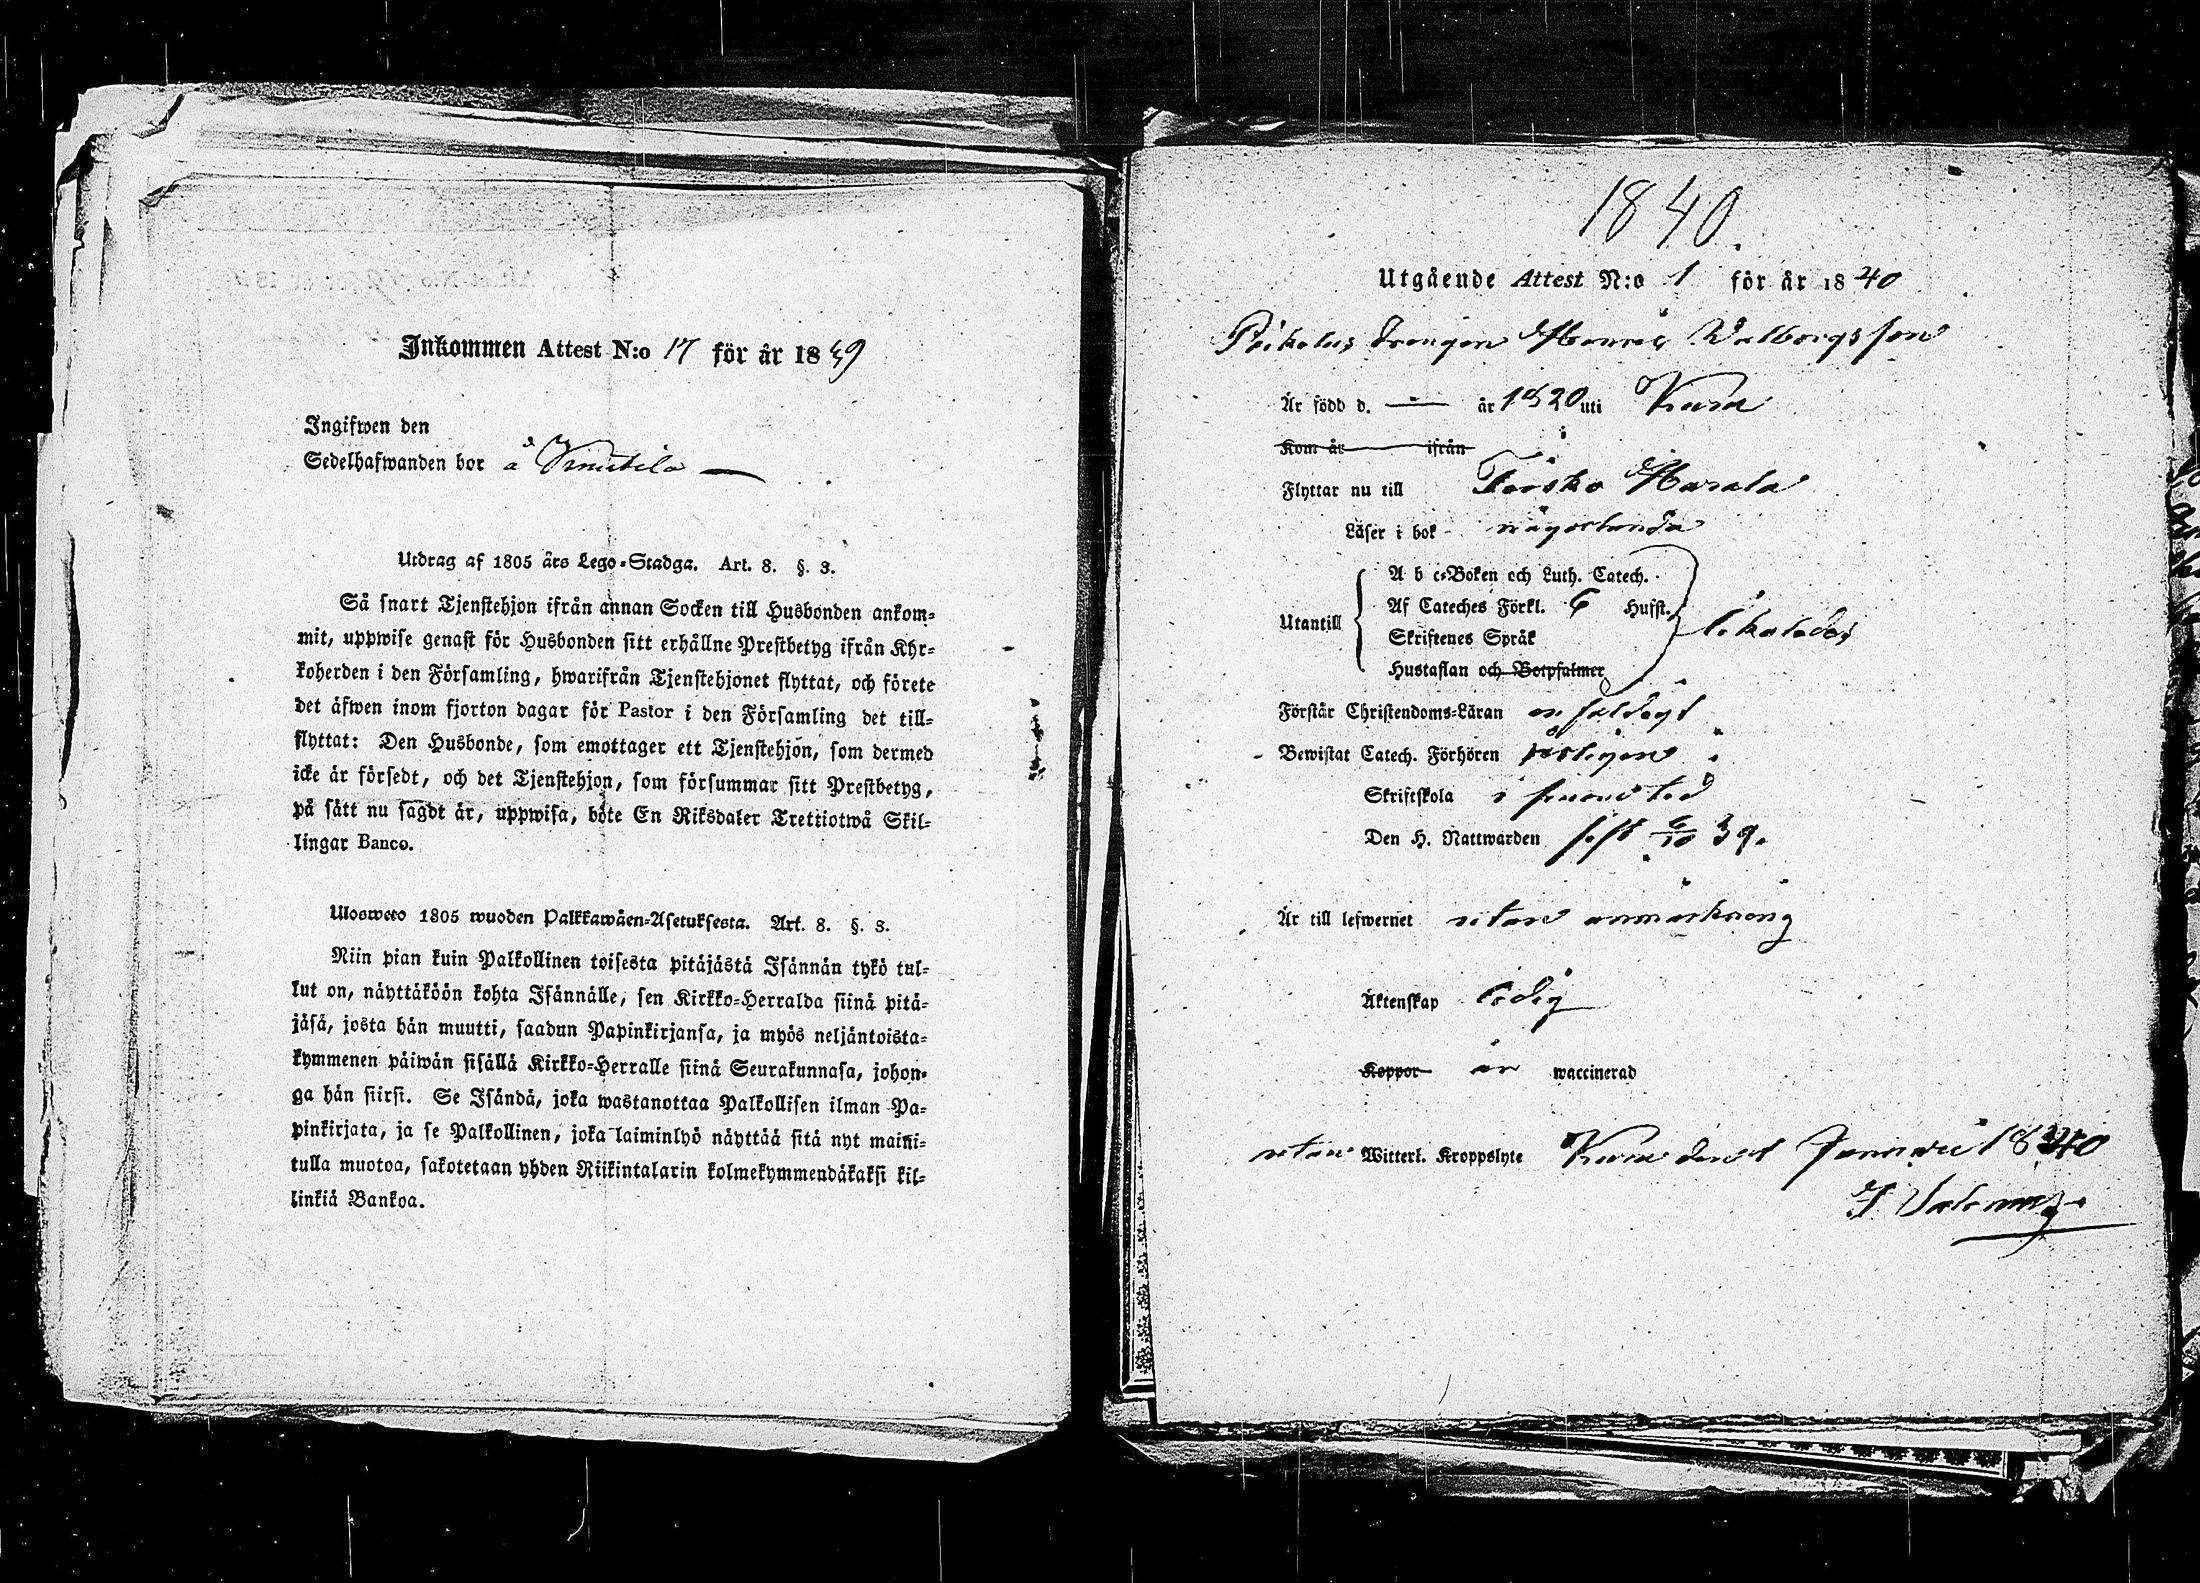 Inkommen Attest N:o 17 för år 1839
Ingifwen den
Sedelhafwanden bor å Knutila
Utdrag af 1805 års Lego-Stadga. Art. 8. §. 3.
Så snart Tjenstehjon ifrån annan Socken till Husbonden ankom-
mit, uppwise genast för Husbonden sitt erhållne Prestbetyg ifrån Kyr-
koherden i den Församling, hwarifrån Tjenstehjonet flyttat, och förete
det äfwen inom fjorton dagar för Pastor i den Församling det till-
flyttat: Den Husbonde, som emottager ett Tjenstehjon, som dermed
icke är försedt, och det Tjenstehjon, som försummar sitt Prestbetyg,
på sätt nu sagdt är, uppwisa, böte En Riksdaler Trettiotwå Skil-
lingar Banco.
Ulosweto 1805 wuoden Palkkawäen-Asetuksesta. Art. 8. §. 3.
Niin pian kuin Palkollinen toisesta pitäjästä Isännän tykö tul-
lut on, näyttäköön kohta Isännälle, sen Kirkko-Herralda siinä pitä-
jäsä, josta hän muutti, saadun Papinkirjansa, ja myös neljäntoista-
kymmenen päiwän sisällä Kirkko-Herralle siinä Seurakunnasa, johon-
ga hän siirsi. Se Isändä, joka wastanottaa Palkollisen ilman Pa-
pinkirjata, ja se Palkollinen, joka laiminlyö näyttää sitä nyt maini-
tulla muotoa, sakotetaan yhden Riikintalarin kolmekymmendäkaksi kil-
linkiä Bankoa.
1840.
Utgående Attest N:o 1 för år 1840
Drengen Henric Walborgsson
Är född d. — år 1820 uti Kuru
Kom år ifrån
Flyttar nu till Harala
Läser i bok någorlunda
Utantill
A b c-Boken och Luth. Catech.
Af Cateches Förkl. 6 Hufst.
Skriftenes Språk
Hustaflan och Botpsalmer
likaledes
Förstår Christendoms-Läran enfaldigt
Bewistat Catech. Förhören årligen
Skriftskola i sinom tid
Den H. Nattwarden sist 6/10 39.
Är till lefwernet utan anmärkning
Äktenskap ledig
Koppor är waccinerad
utan Witterl. Kroppslyte Kuru den 1 Januarii 1840